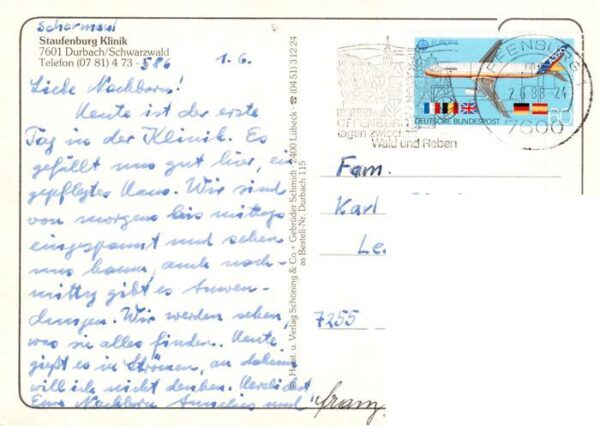 Staufenburg Klinik
7601 Durbach/Schwarzwald
Telefon (07 81) 4 73 - 586
1.6.
Liebe Nachbarn!
Heute ist der erste
Tag in der Klinik. Es
gefällt uns gut hier, ein
gepflegtes Haus. Wir sind
von morgens bis mittags
eingespannt und sehen
uns kaum, auch nach-
mittag gibt es Anwen-
dungen. Wir werden sehen,
was sie alles finden. Heute
gießt es in Strömen, an daheim
will ich nicht denken. Herzlichst
Eure Nachbarn Annelies und Franz
Herst. u. Verlag Schöning & Co + Gebrüder Schmidt · 2400 Lübeck · ☎ (0451) 31224
as Bestell-Nr. Durbach 115
EUROPA
AIRBUS
DEUTSCHE BUNDESPOST
60
OFFENBURG
2.6.88-24
7600
OFFENBURG
tagen zwischen
Wald und Reben
Fam.
Karl
Le
7255